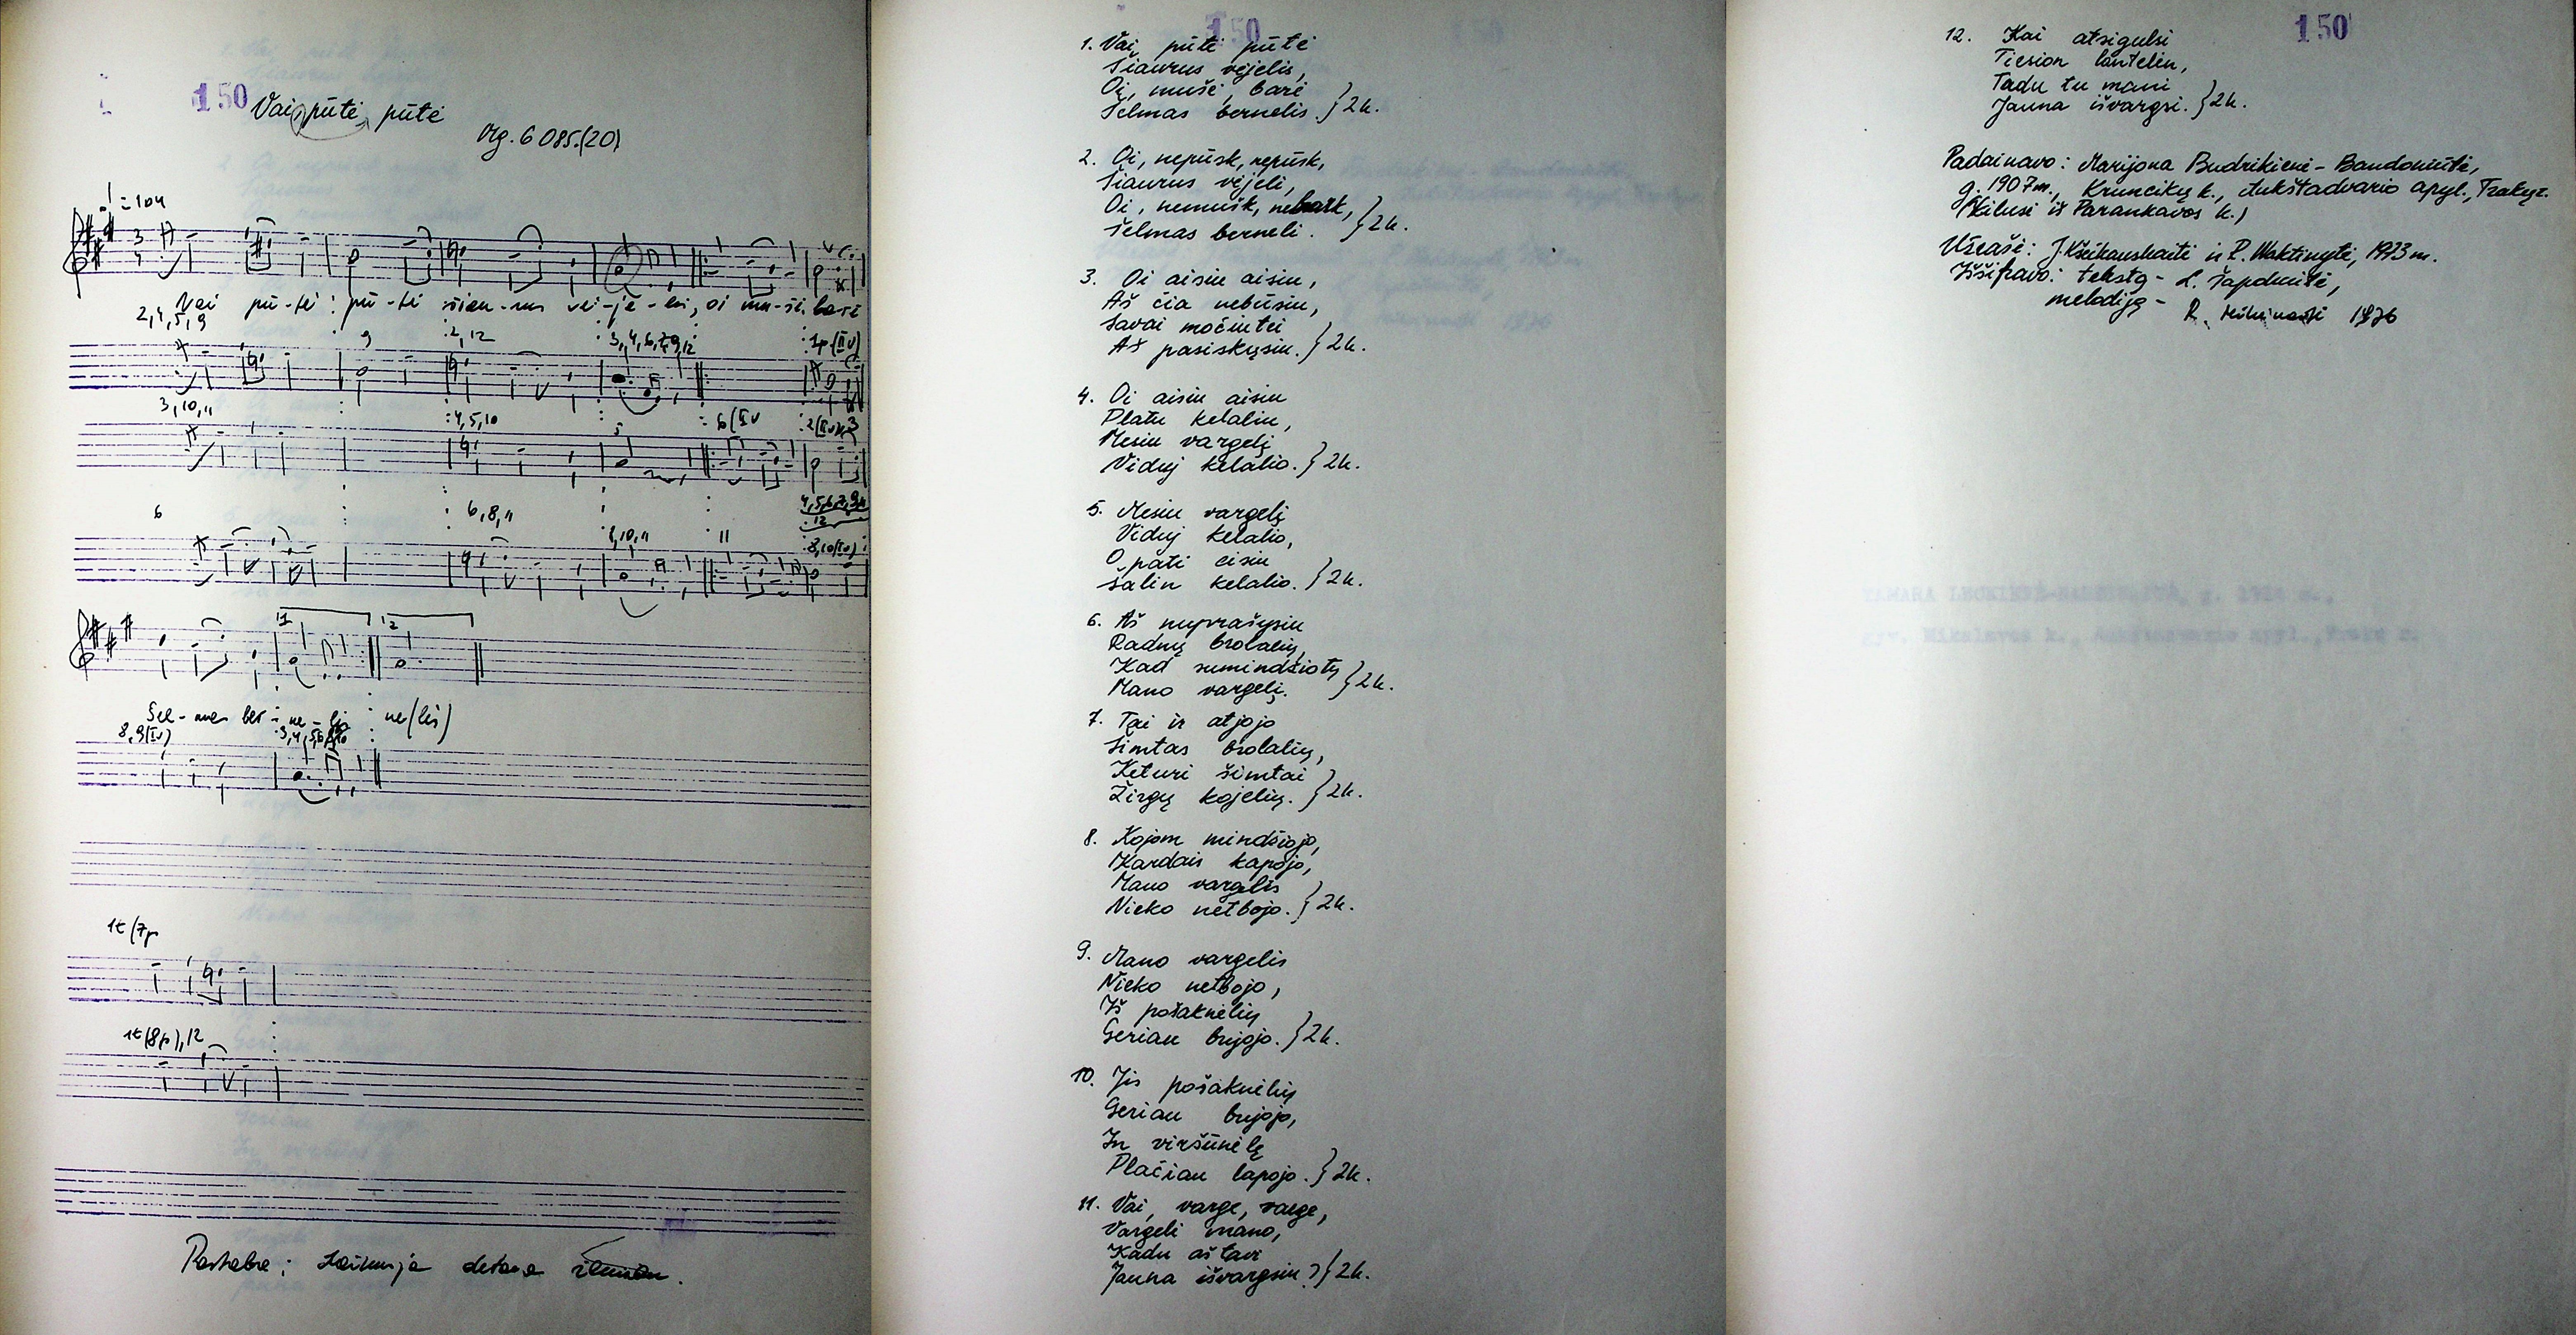 150
Vai pūtė, pūtė
Mg. 6085(20)
♩=104
Vai pū-tė: pū-tė šiau-rus vė-jė-lis, oi mu-šė, barė
2,4,5,9
9
2,12
3,4,6,7,9,12
1p(IIv)
3,10,11
4,5,10
5
6(IIv
2(IIv),3
6
6,8,11
8,10,11
11
4,5,6,7,9,11
12
8,10(IIv)
1
2
Šel-mas ber-ne-lis ne(lis)
8,9(IIv)
1t(7p
1t(8p),12
Pastaba:
150
1. Vai, pūtė pūtė
Šiaurus vėjelis,
Oi, mušė, barė
Šelmas bernelis. }2k.
2. Oi, nepūsk, nepūsk,
Šiaurus vėjeli,
Oi, nemušk, nebark,
Šelmas berneli. }2k.
3. Oi aisiu aisiu,
Aš čia nebūsiu,
Savai močiutei
Aš pasiskųsiu. }2k.
4. Oi aisiu aisiu
Platu kelaliu,
Mesiu vargelį
Vidùj kelalio. }2k.
5. Mesiu vargelį
Viduj kelalio,
O pati eisiu
Šalin kelalio. }2k.
6. Aš nuprašysiu
Radnų brolalių,
Kad sumindžiotų
Mano vargelį. }2k.
7. Tai ir atjojo
Šimtas brolalių,
Keturi šimtai
Žirgų kojelių. }2k.
8. Kojom mindžiojo,
Kardais kapojo,
Mano vargelis
Nieko netbojo. }2k.
9. Mano vargelis
Nieko netbojo,
Iš pošaknėlių
Geriau bujojo. }2k.
10. Jis pošaknėlių
Geriau bujojo,
In viršūnėlę
Plačiau lapojo. }2k.
11. Vai, varge, varge,
Vargeli mano,
Kadu aš tavi
Jauna išvargsiu? }2k.
150
12. Kai atsigulsi
Tiesion lantelėn,
Tadu tu mani
Jauna išvargsi. }2k.
Padainavo: Marijona Budrikienė-Bandoniūtė,
g. 1907m., Kruncikų k., Aukštadvario apyl., Trakų r.
(Kilusi iš Parankavos k.)
Užrašė: J. ir R. 1973m.
Iššifravo: tekstą - L. Šapdvitė,
melodiją - R. 1976